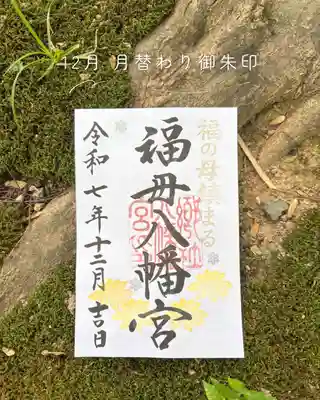 12月 月替わり御朱印
福の母鎮まる
福母八幡宮
令和七年十二月吉日